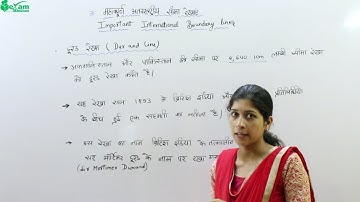 exam
महत्वपूर्ण अन्तरराष्ट्रीय सीमा रेखाएं
Important International Boundary lines
डूरंड रेखा (Durand Line)
अफगानिस्तान और पाकिस्तान की सीमा पर 2,640 km लम्बी सीमा रेखा
को डूरंड रेखा कहते है।
यह रेखा सन 1893 में ब्रिटिश इंडिया और
के बीच हुई एक सहमती का नतीजा है।
इस रेखा का नाम ब्रिटिश इंडिया के तत्कालीन
सर मॉर्टिमर डूरंड के नाम पर रखा गया
(Sir Mortimer Durand)